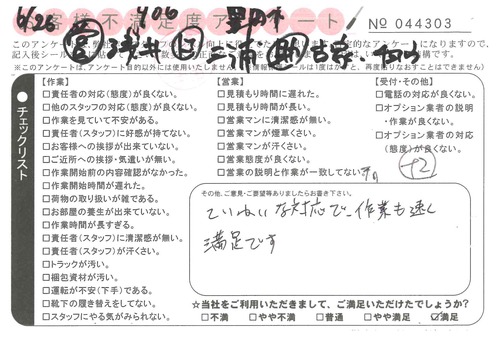 お客様不満足度アンケート
№ 044303
6/26
406
営 浅井 口 三浦 助
【作業】
□責任者の対応(態度)が良くない。
□他のスタッフの対応(態度)が良くない。
□作業を見ていて不安がある。
□責任者(スタッフ)に好感が持てない。
□お客様への挨拶が出来ていない。
□ご近所への挨拶・気遣いが無い。
□作業開始前の内容確認がなかった。
□作業開始時間が遅れた。
□荷物の取り扱いが雑である。
□お部屋の養生が出来ていない。
□作業時間が長すぎる。
□責任者(スタッフ)に清潔感が無い。
□責任者(スタッフ)が汗くさい。
□トラックが汚い。
□梱包資材が汚い。
□運転が不安(下手)である。
□靴下の履き替えをしてない。
□スタッフにやる気がみられない。
【営業】
□見積もり時間に遅れた。
□見積もり時間が長い。
□営業マンに清潔感が無い。
□営業マンが煙草くさい。
□営業マンが汗くさい。
□営業態度が良くない。
□営業の説明と作業が一致してない
【受付・その他】
□電話の対応が良くない。
□オプション業者の説明・作業が良くない。
□オプション業者の対応(態度)が良くない。
+2
●チェックリスト
その他、ご意見・ご要望等ありましたらお書き下さい。
ていねいな対応で、作業も速く
満足です
☆当社をご利用いただきまして、ご満足いただけたでしょうか?
□不満 □やや不満 □普通 □やや満足 ☑満足